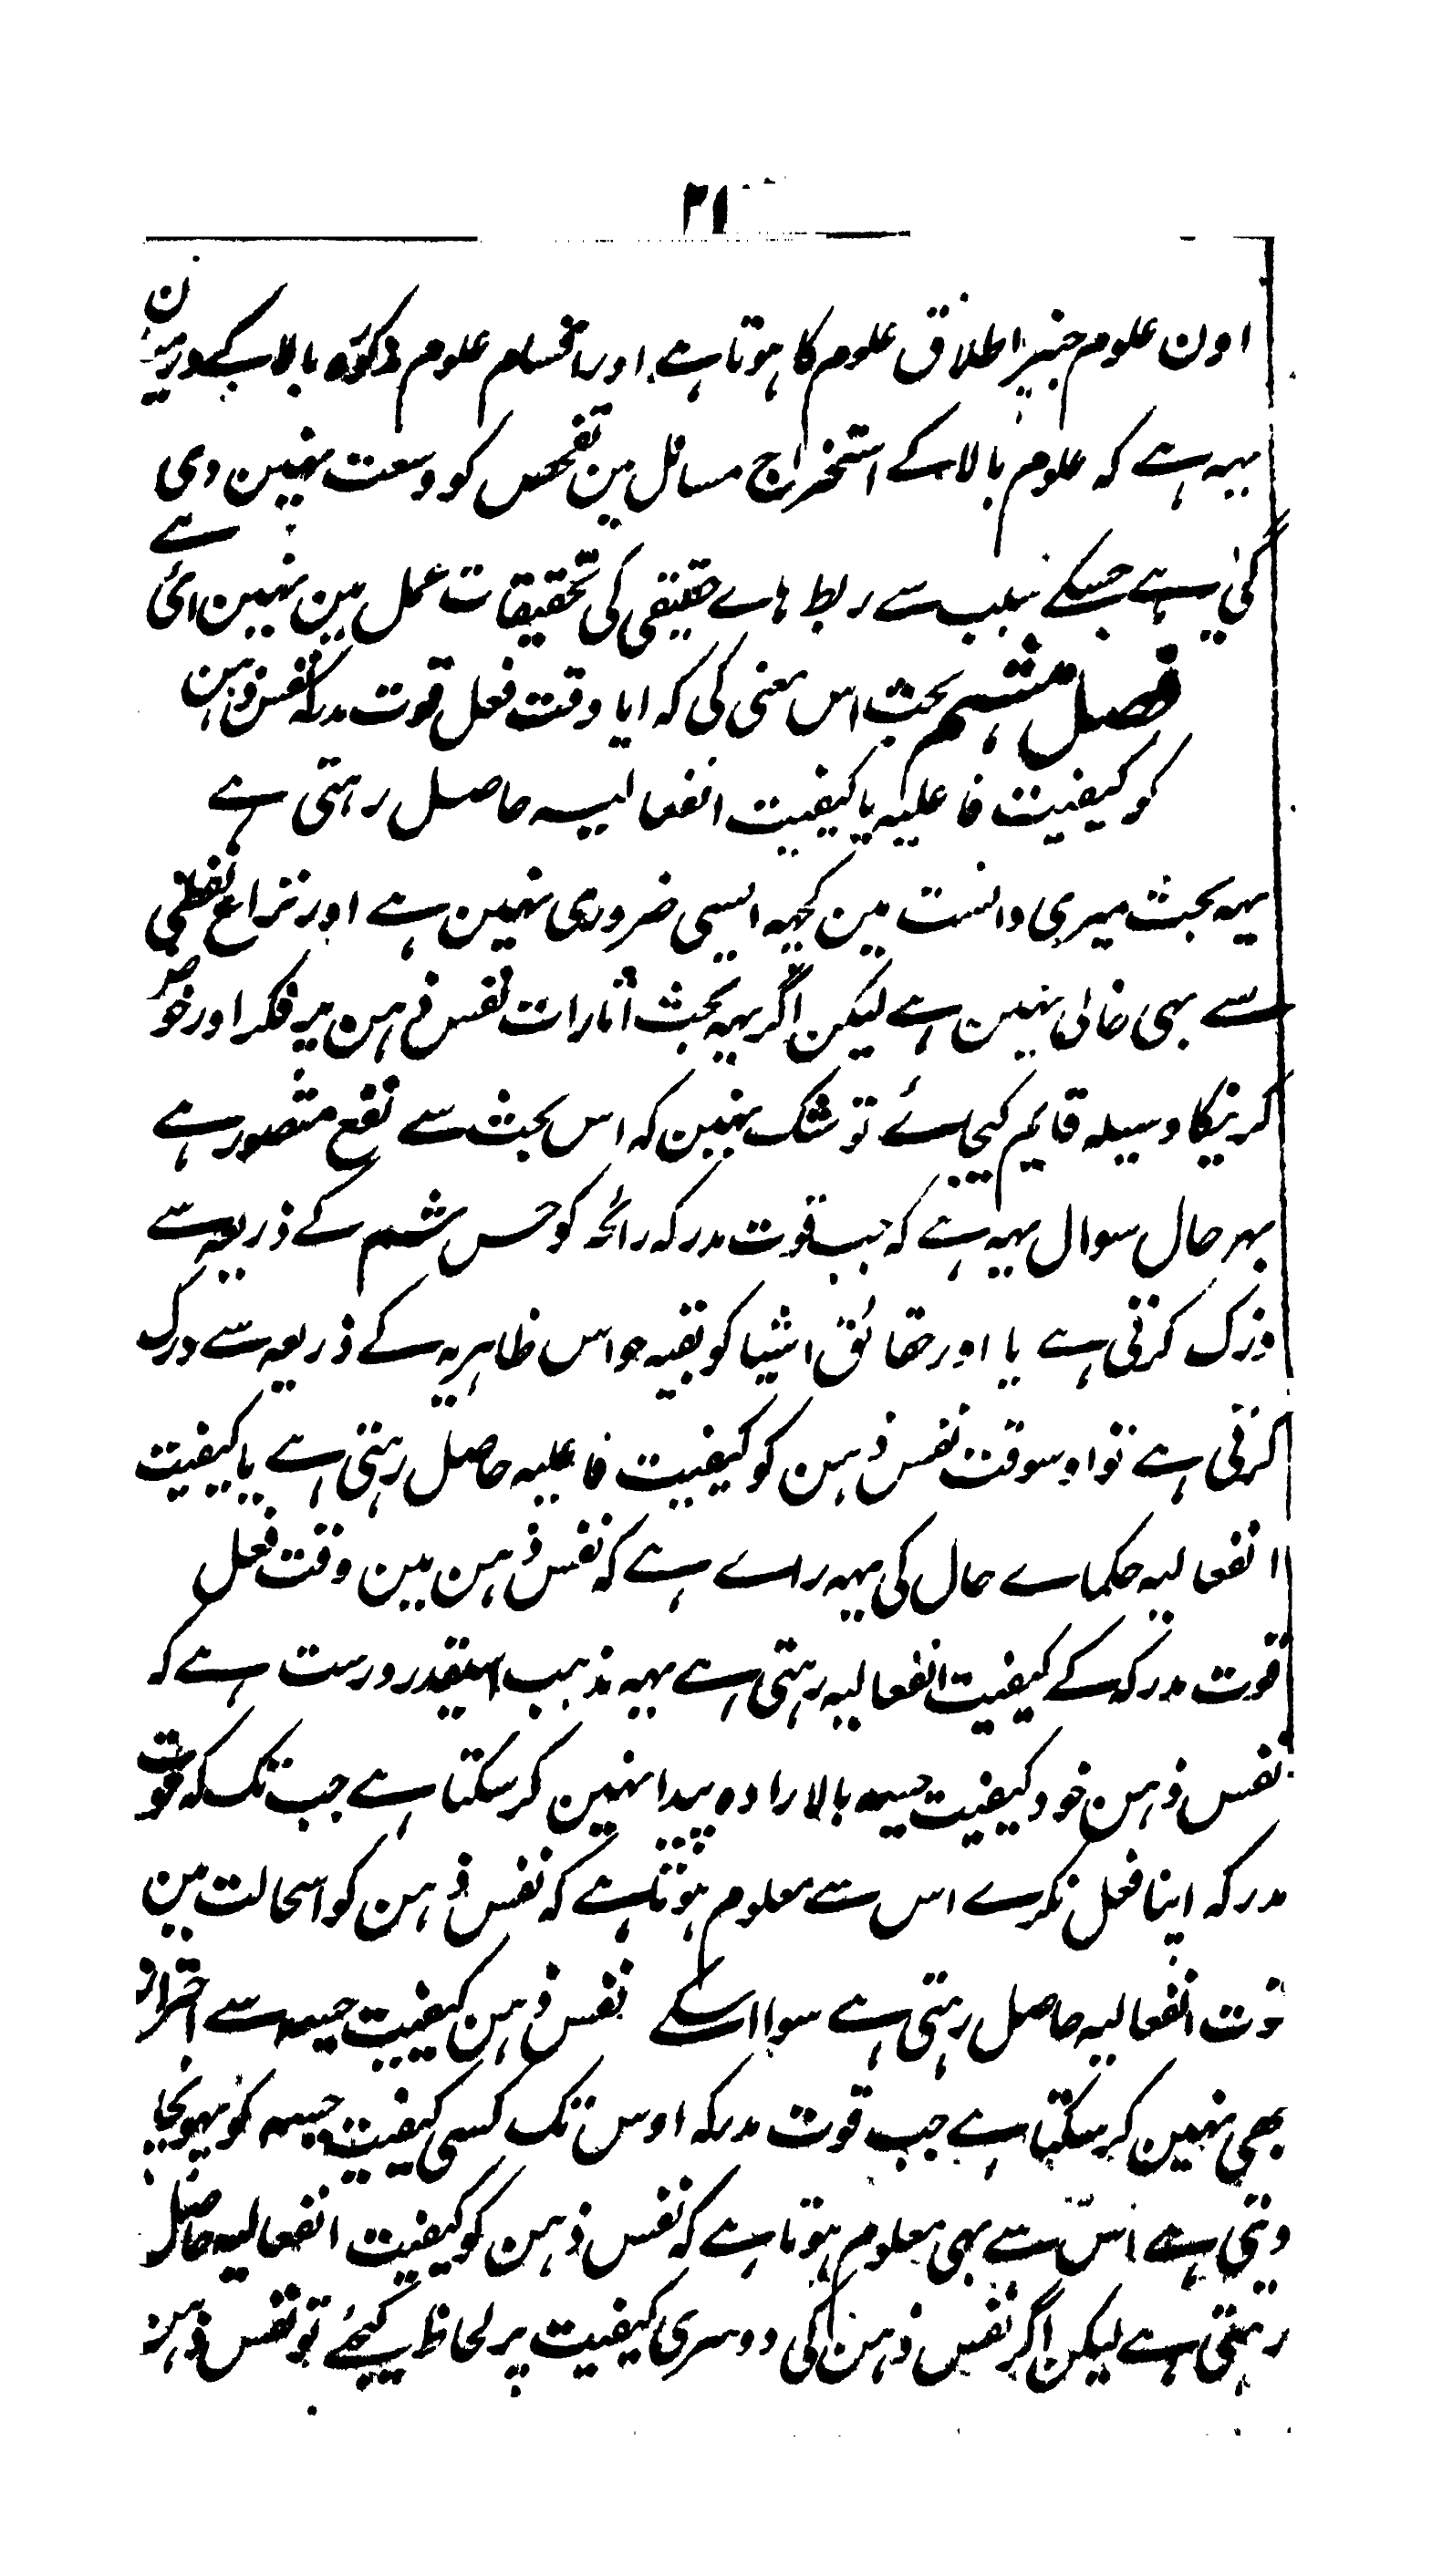 ۲۱
اون علوم جنپر اطلاق علوم کا ہوتا ہے اور اقسام علوم مذکورہ بالا کے درمیان
یہہ ہے کہ علوم بالا کے استخراج مسائل مین تفحص کو وسعت نہین دی
گئی ہے جسکے سبب سے ربط ہاے حقیقی کی تحقیقات عمل مین نہین آئی ہے
فصل ششم بحث اس معنی کی کہ ایا وقت فعل قوت مدرکہ نفس ذہن
کو کیفیت فاعلیہ یا کیفیت انفعالیہ حاصل رہتی ہے
یہہ بحث میری دانست مین کچہہ ایسی ضروری نہین ہے اور نزاع لفظی
سے بہی خالی نہین ہے لیکن اگر یہہ بحث اثارات نفس ذہن پر فکر اور خوض
کرنیکا وسیلہ قایم کیجاے تو شک نہین کہ اس بحث سے نفع متصور ہے
بہر حال سوال یہہ ہے کہ جب قوت مدرکہ رائحہ کو حس شم کے ذریعہ سے
درک کرتی ہے یا اور حقائق اشیا کو بقیہ حواس ظاہریہ کے ذریعہ سے درک
کرتی ہے تو اوسوقت نفس ذہن کو کیفیت فاعلیہ حاصل رہتی ہے یا کیفیت
انفعالیہ حکماے حال کی یہہ راے ہے کہ نفس ذہن مین وقت فعل
قوت مدرکہ کے کیفیت انفعالیہ رہتی ہے یہہ مذہب اسیقدر درست ہے کہ
نفس ذہن خود کیفیت حسیہ بالارادہ پیدا نہین کرسکتا ہے جب تک کہ قوت
مدرکہ اپنا فعل نکرے اس سے معلوم ہوتا ہے کہ نفس ذہن کو اسحالت مین
قوت انفعالیہ حاصل رہتی ہے سوا اسکے نفس ذہن کیفیت حسیہ سے احتراز
بھی نہین کرسکتا ہے جب قوت مدرکہ اوس تک کسی کیفیت حسیہ کو پہونچا
دیتی ہے اس سے بہی معلوم ہوتا ہے کہ نفس ذہن کو کیفیت انفعالیہ حاصل
رہتی ہے لیکن اگر نفس ذہن کی دوسری کیفیت پر لحاظ کیجئے تو نفس ذہن